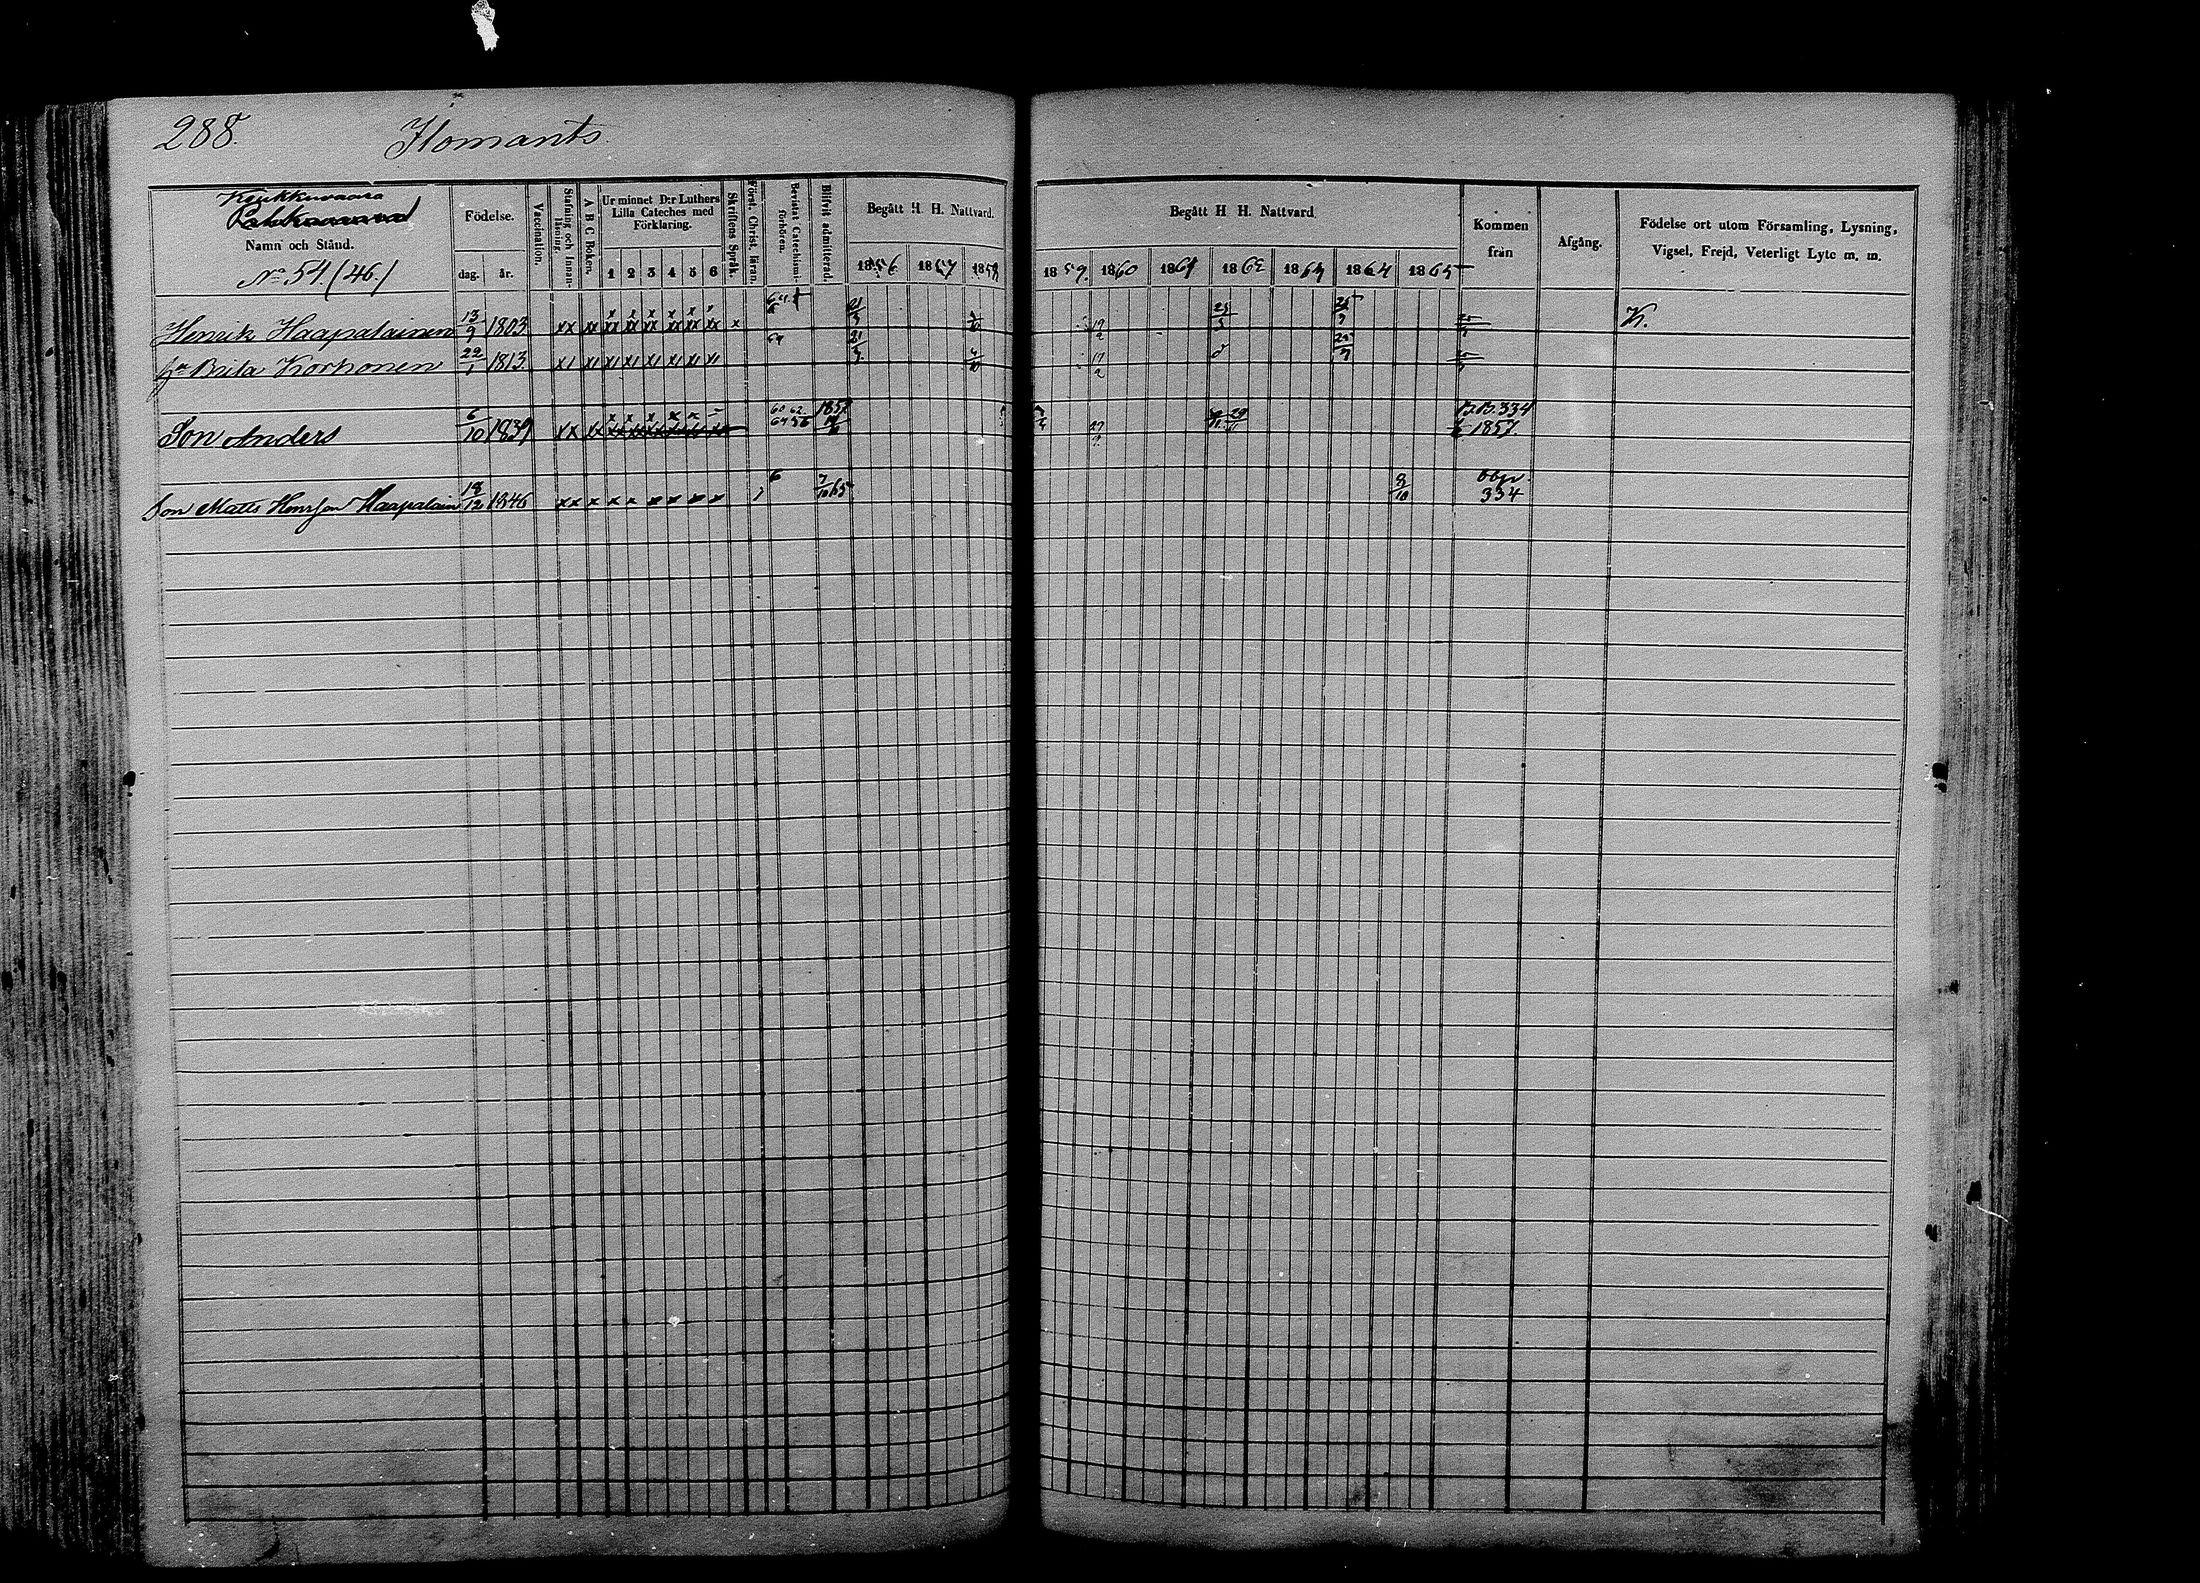 288. Ilomants
Kuukkuvaara
Namn och Stånd.
No 54 (46)
Födelse.
dag. år.
Vaccination.
Stafning och Innanläsning.
A B C Boken.
Ur minnet D:r Luthers
Lilla Cateches med
Förklaring.
1 2 3 4 5 6
Skriftens Språk.
Först. Christ. läran.
Bevistat Catechismiförhören.
Blifvit admitterad.
Begått H. H. Nattvard.
1856 1857 1858
Begått H. H. Nattvard.
1859. 1860 1861 1862 1863 1864 1865
Kommen
från
Afgång.
Födelse ort utom Församling, Lysning,
Vigsel, Frejd, Veterligt Lyte m. m.
Henrik Haapalainen 13/9 1803 xx xx xx xx xx xx xx xx x 21/3 19/2 25/3 25/3 K.
hu Brita Korhonen 22/1 1813. x1 x1 x1 x1 x1 x1 x1 x1 64 21/3 19/2 25/3
Son Anders 6/10 1839 xx xx 60 62 1857 B.B. 334
1857.
Son Matts Hensson Haapalain 18/12 1846 xx x x x x x x x 7/10 65 8/10 334